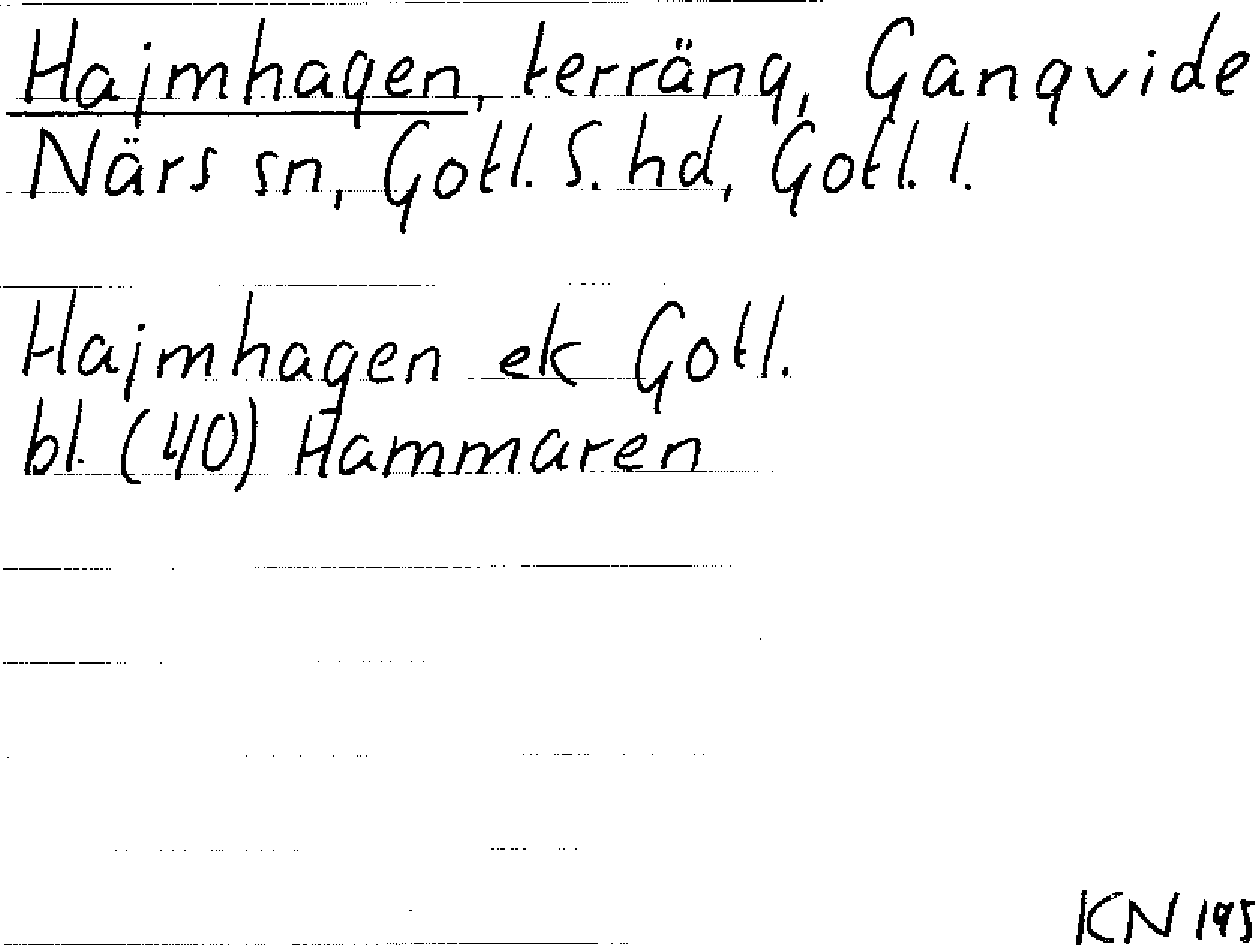 Hajmhagen, terräng, Gangvide
Närs sn, Gotl. S. hd, Gotl. l.
Hajmhagen ek Gotl.
bl. (40) Hammaren
KN 195